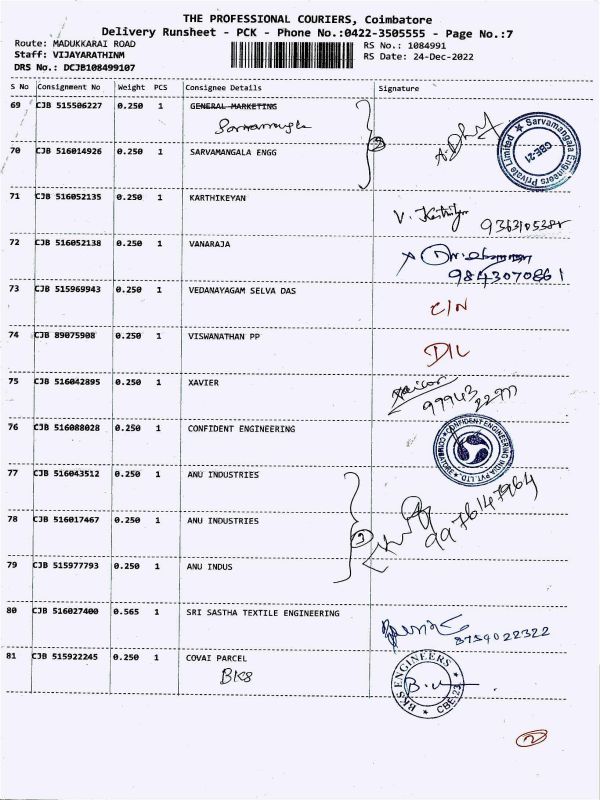 THE PROFESSIONAL COURIERS, Coimbatore
Delivery Runsheet - PCK - Phone No.:0422-3505555 - Page No.:7
Route: MADUKKARAI ROAD RS No.: 1084991
Staff: VIJAYARATHINM RS Date: 24-Dec-2022
DRS No.: DCJB108499107
S No Consignment No Weight PCS Consignee Details Signature
69 CJB 515506227 0.250 1 GENERAL MARKETING
Sarvamangala
Sarvamangala Engineers Private Limited ★ CBE-21
70 CJB 516014926 0.250 1 SARVAMANGALA ENGG
71 CJB 516052135 0.250 1 KARTHIKEYAN
72 CJB 516052138 0.250 1 VANARAJA
9843070861
73 CJB 515969943 0.250 1 VEDANAYAGAM SELVA DAS
74 CJB 89075908 0.250 1 VISWANATHAN PP
75 CJB 516042895 0.250 1 XAVIER
76 CJB 516088028 0.250 1 CONFIDENT ENGINEERING
CONFIDENT ENGINEERING INDIA PVT. LTD. COIMBATORE
77 CJB 516043512 0.250 1 ANU INDUSTRIES
78 CJB 516017467 0.250 1 ANU INDUSTRIES
9976147964
79 CJB 515977793 0.250 1 ANU INDUS
80 CJB 516027400 0.565 1 SRI SASTHA TEXTILE ENGINEERING
8759022322
81 CJB 515922245 0.250 1 COVAI PARCEL
BKS
BKS ENGINEERS ★ CBE-23 ★
2